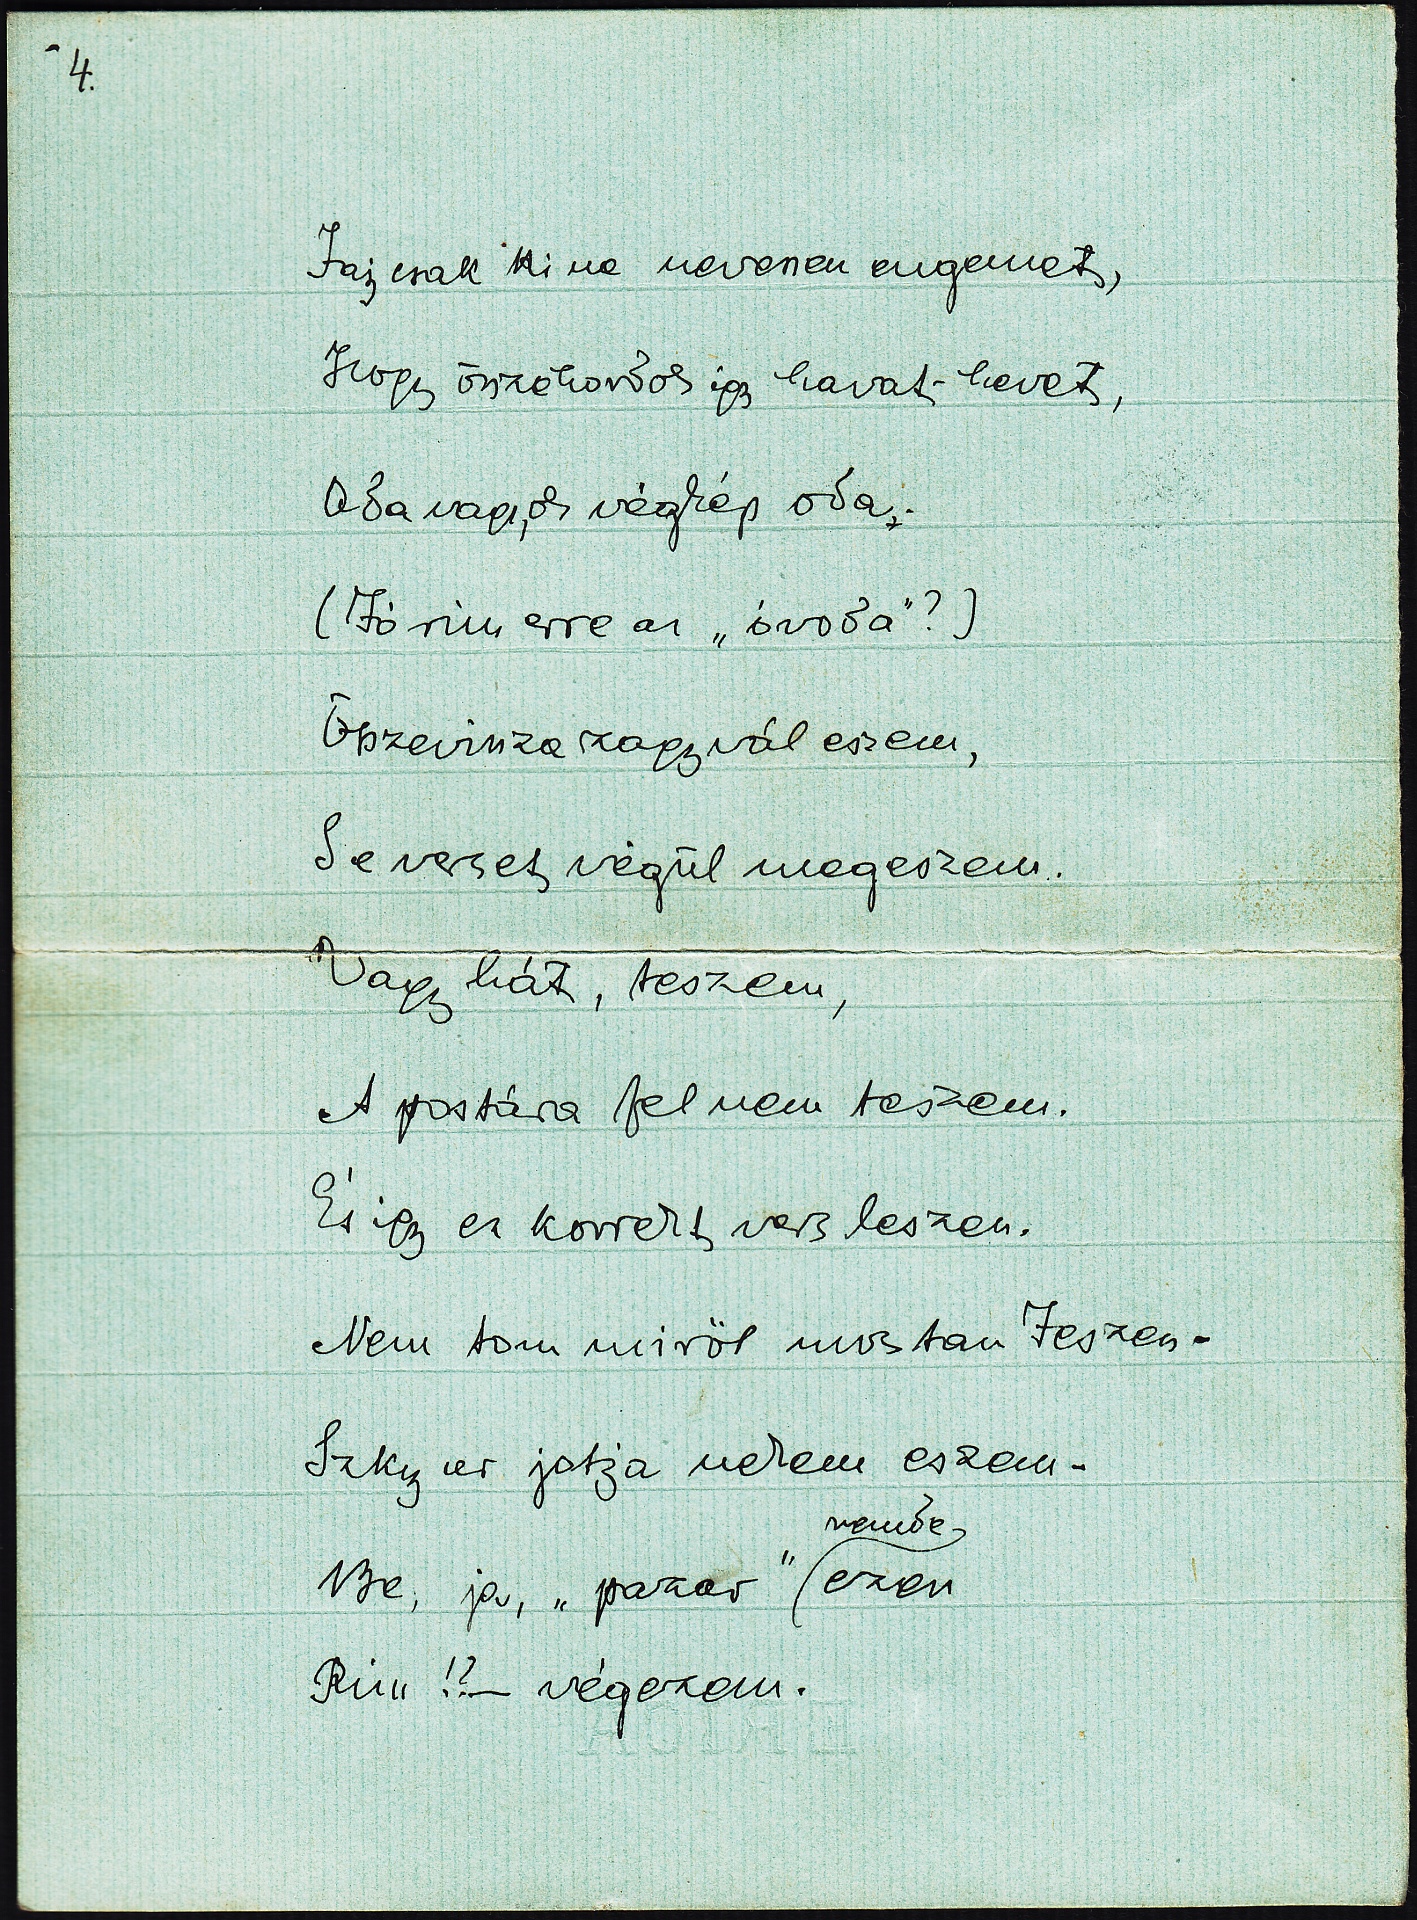 4.
Jaj csak ki ne nevessen engemet,
Hogy összehordok így havat-hevet,
Oda vagyok végkép oda,-
(Jó rim erre az „óvoda"?)
Összevissza zagyvál eszem,
S e verset végül megeszem.
Vagy hát, teszem,
A postára fel nem teszem.
És így ez korrekt vers leszen.
Nem tom miröl mostan Jeszen-
Szky ur nekem eszem-
Be, ja, „pazar" (ezen
Rim !?— végezem.